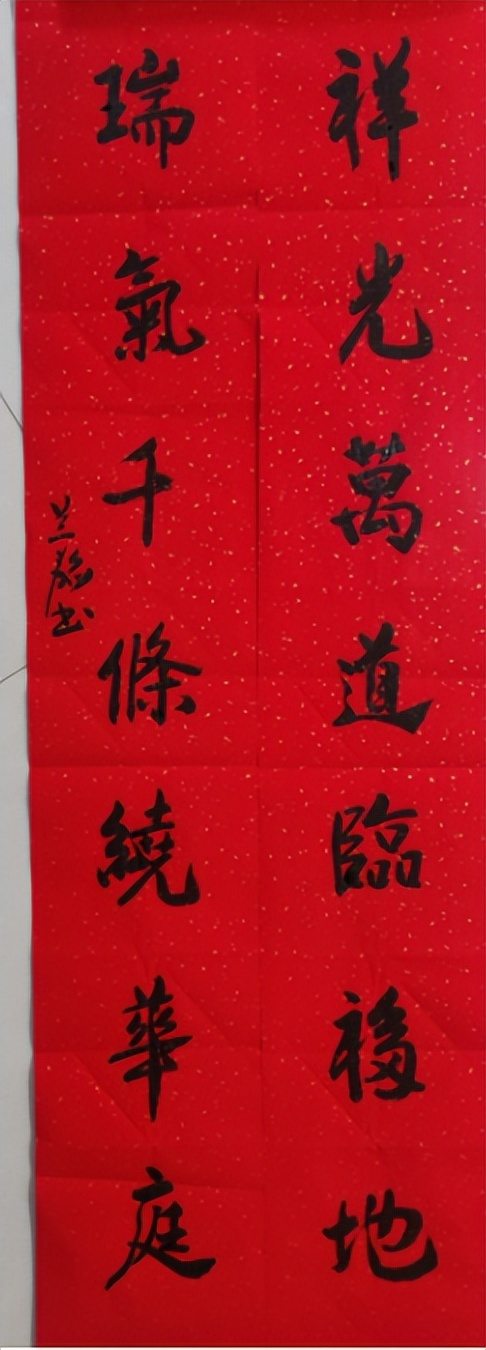 祥光萬道臨福地
瑞氣千條繞華庭